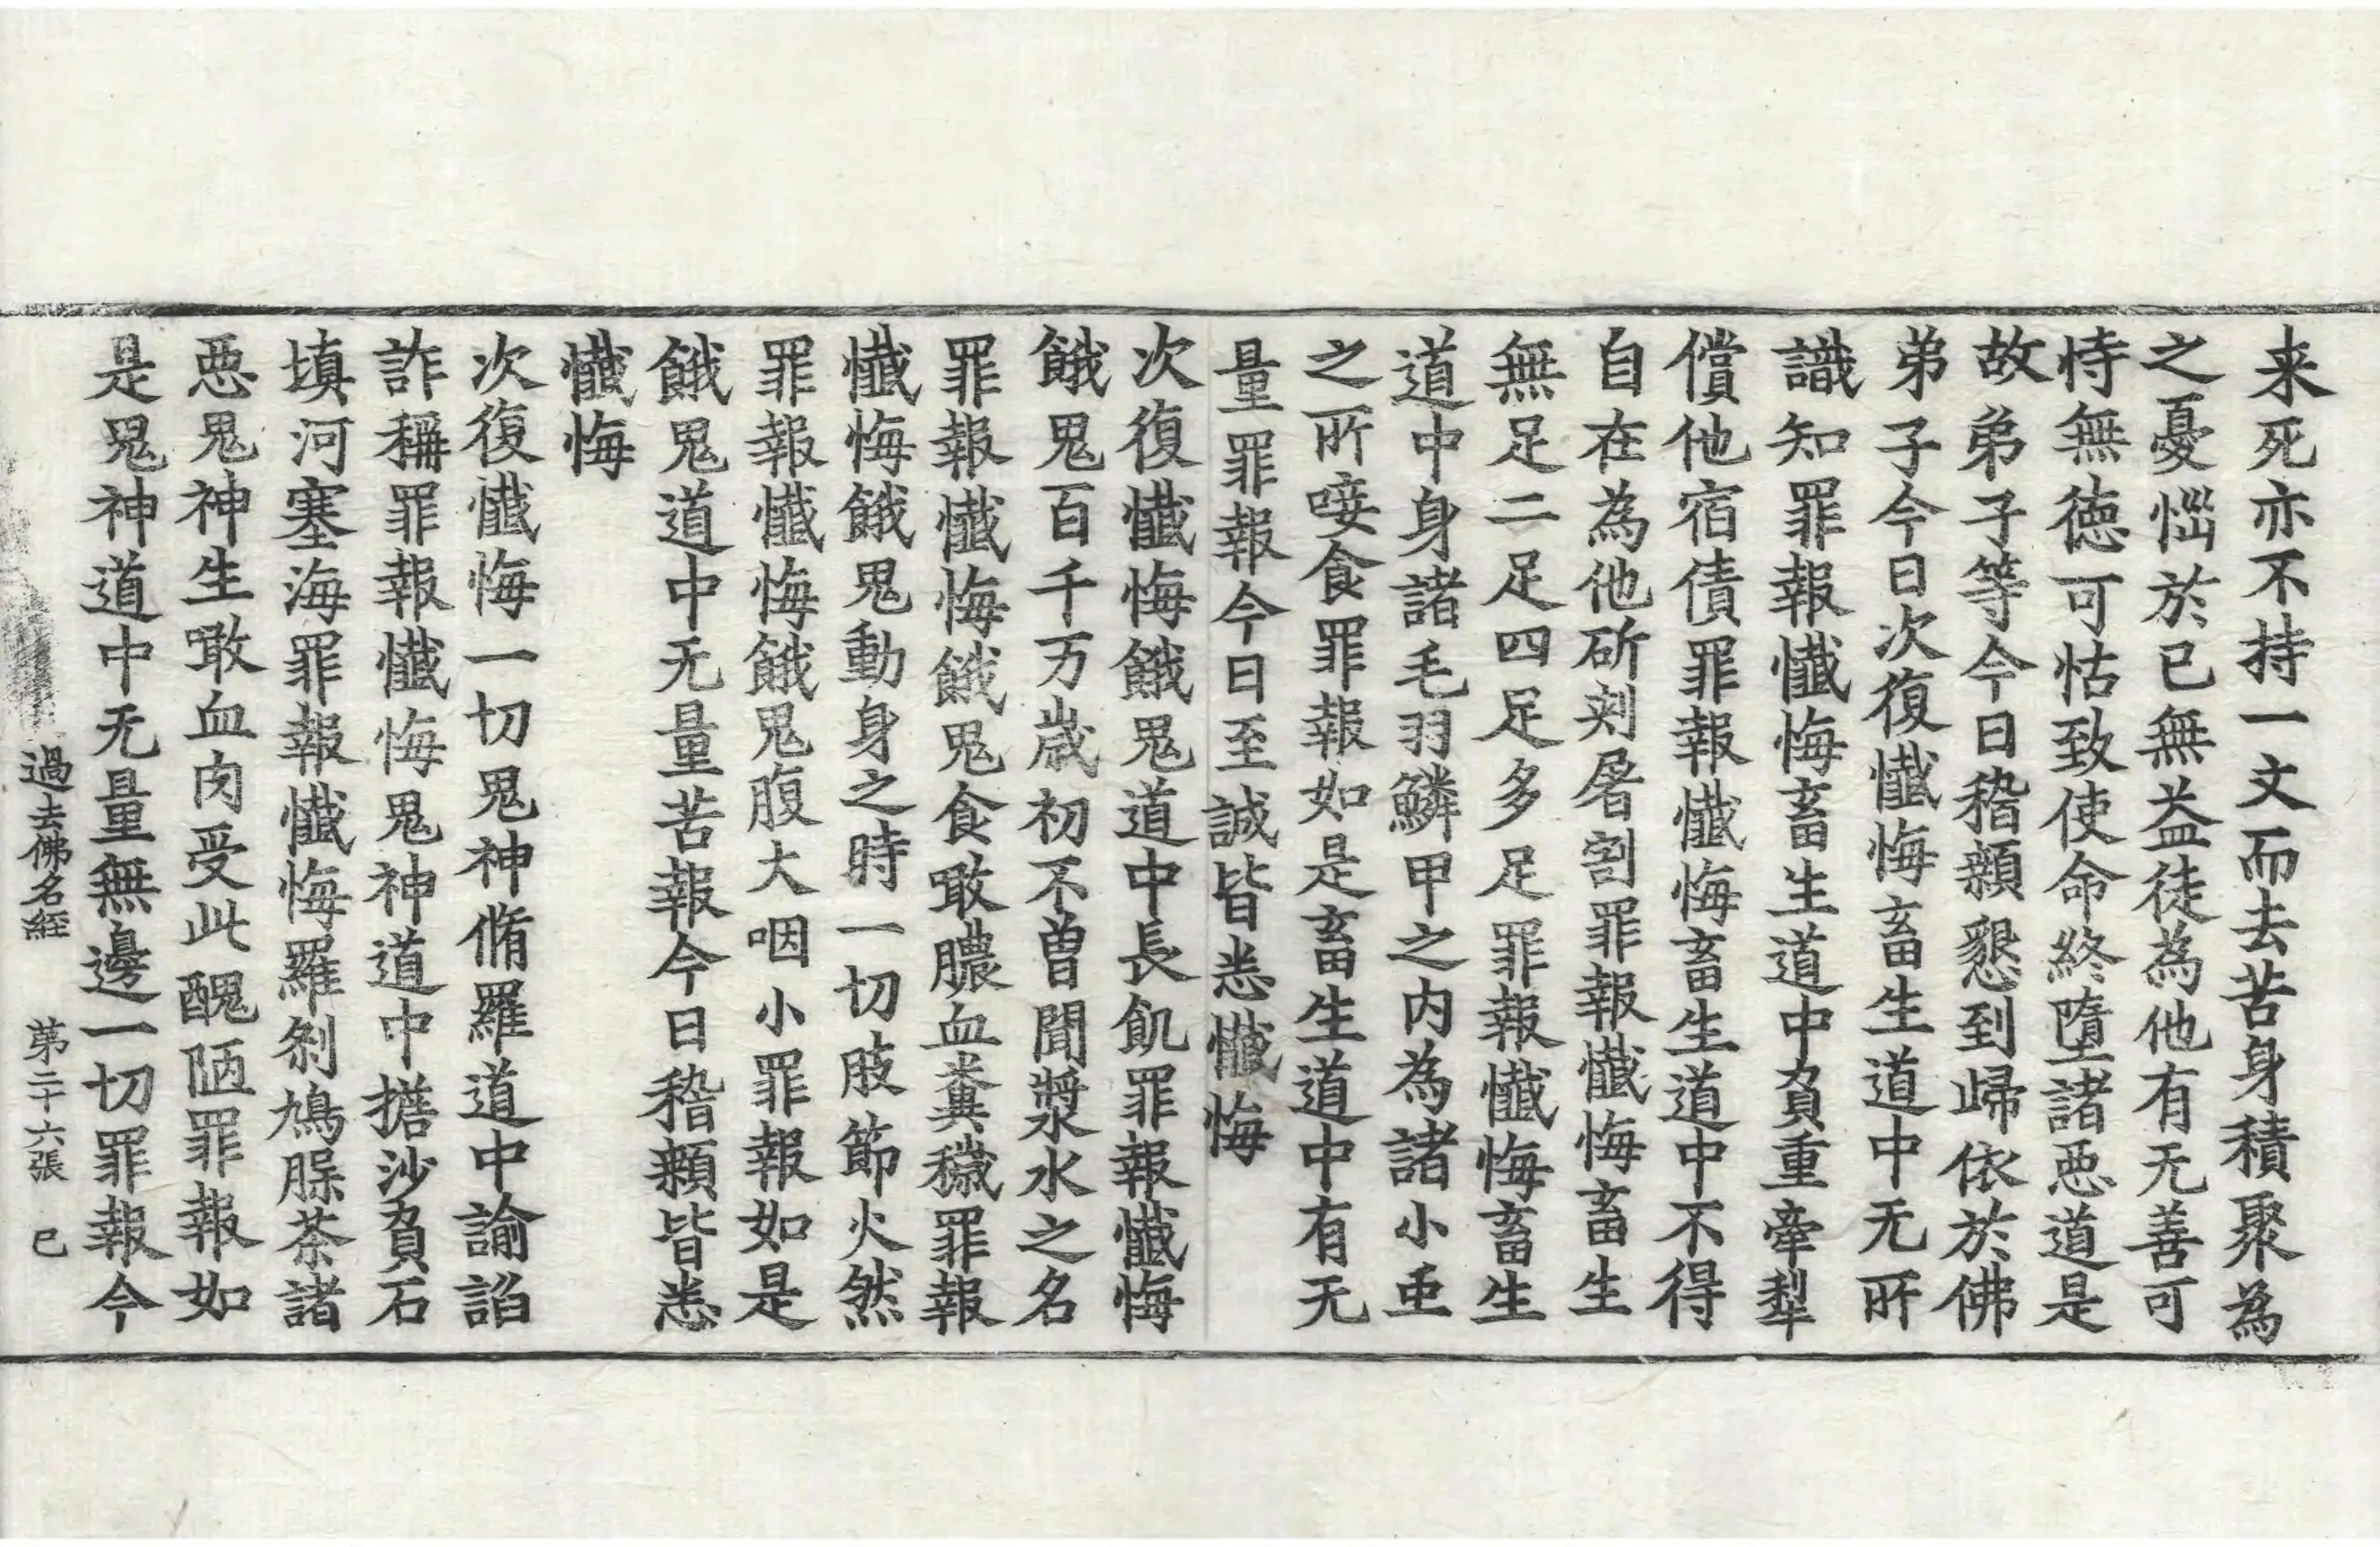 来死亦不持一文而去苦身積聚為
之憂惱於已無益徒為他有无善可
恃無德可怙致使命終墮諸惡道是
故弟子等今日稽顙懇到歸依於佛
弟子今日次復懺悔畜生道中无所
識知罪報懺悔畜生道中負重牽犁
償他宿債罪報懺悔畜生道中不得
自在為他斫刺屠割罪報懺悔畜生
無足二足四足多足罪報懺悔畜生
道中身諸毛羽鱗甲之内為諸小虫
之所唼食罪報如是畜生道中有无
量罪報今日至誠皆悉懺悔
次復懺悔餓鬼道中長飢罪報懺悔
餓鬼百千万歲初不曾聞漿水之名
罪報懺悔餓鬼食噉膿血糞穢罪報
懺悔餓鬼動身之時一切肢節火然
罪報懺悔餓鬼腹大咽小罪報如是
餓鬼道中无量苦報今日稽顙皆悉
懺悔
次復懺悔一切鬼神脩羅道中諭諂
詐稱罪報懺悔鬼神道中擔沙負石
填河塞海罪報懺悔羅剎鳩脵茶諸
惡鬼神生噉血肉受此醜陋罪報如
是鬼神道中无量無邊一切罪報今
過去佛名經 第二十六張 已